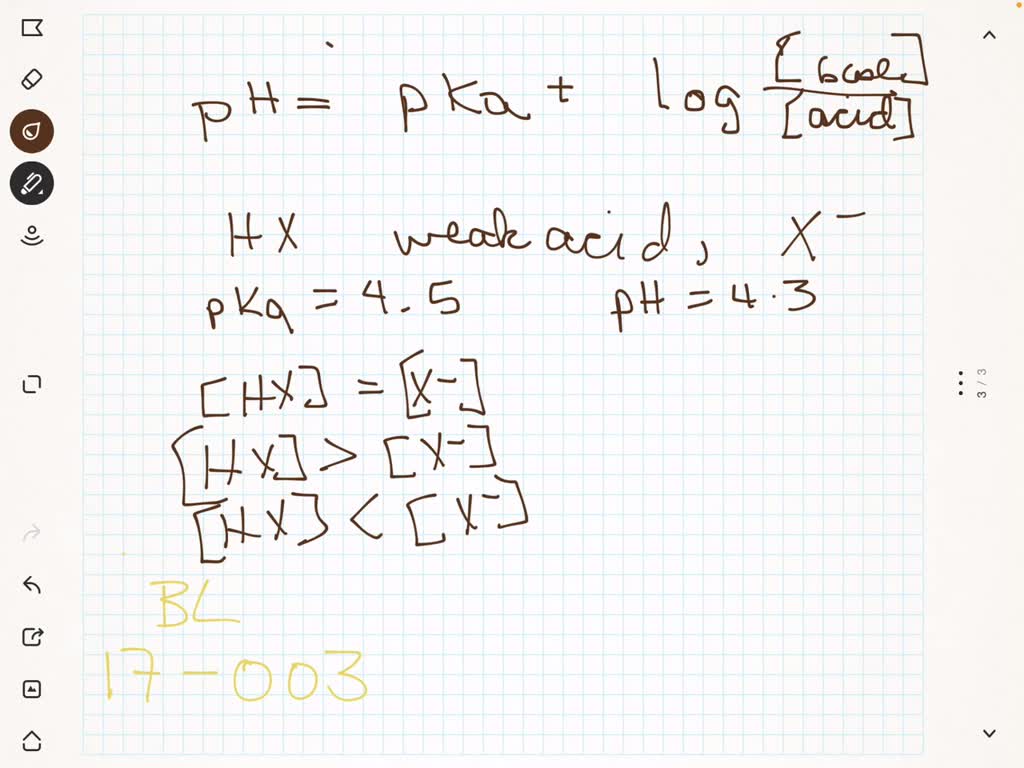 pH = pKa + log [base]/[acid]
HX weak acid, X⁻
pKa = 4.5 pH = 4.3
[HX] = [X⁻]
[HX] > [X⁻]
[HX] < [X⁻]
BL
17-003
3 / 3